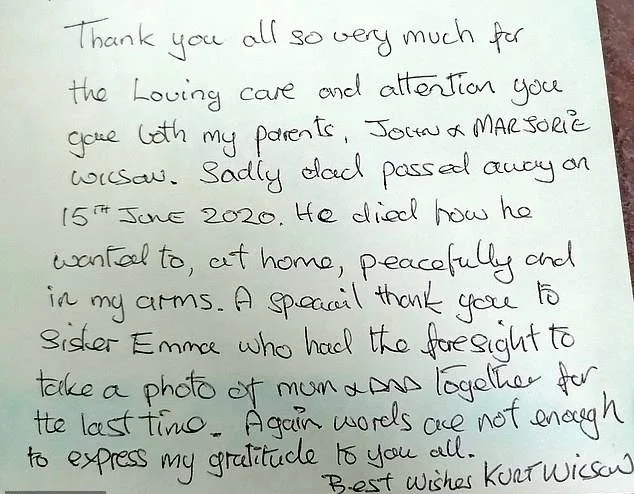 Thank you all so very much for
the Loving care and attention you
gave both my parents, JOHN & MARJORIE
WILSON. Sadly dad passed away on
15TH JUNE 2020. He died how he
wanted to, at home, peacefully and
in my arms. A speacil thank you to
Sister Emma who had the foresight to
take a photo of mum & DAD together for
the last time. Again words are not enough
to express my gratitude to you all.
Best wishes KURT WILSON